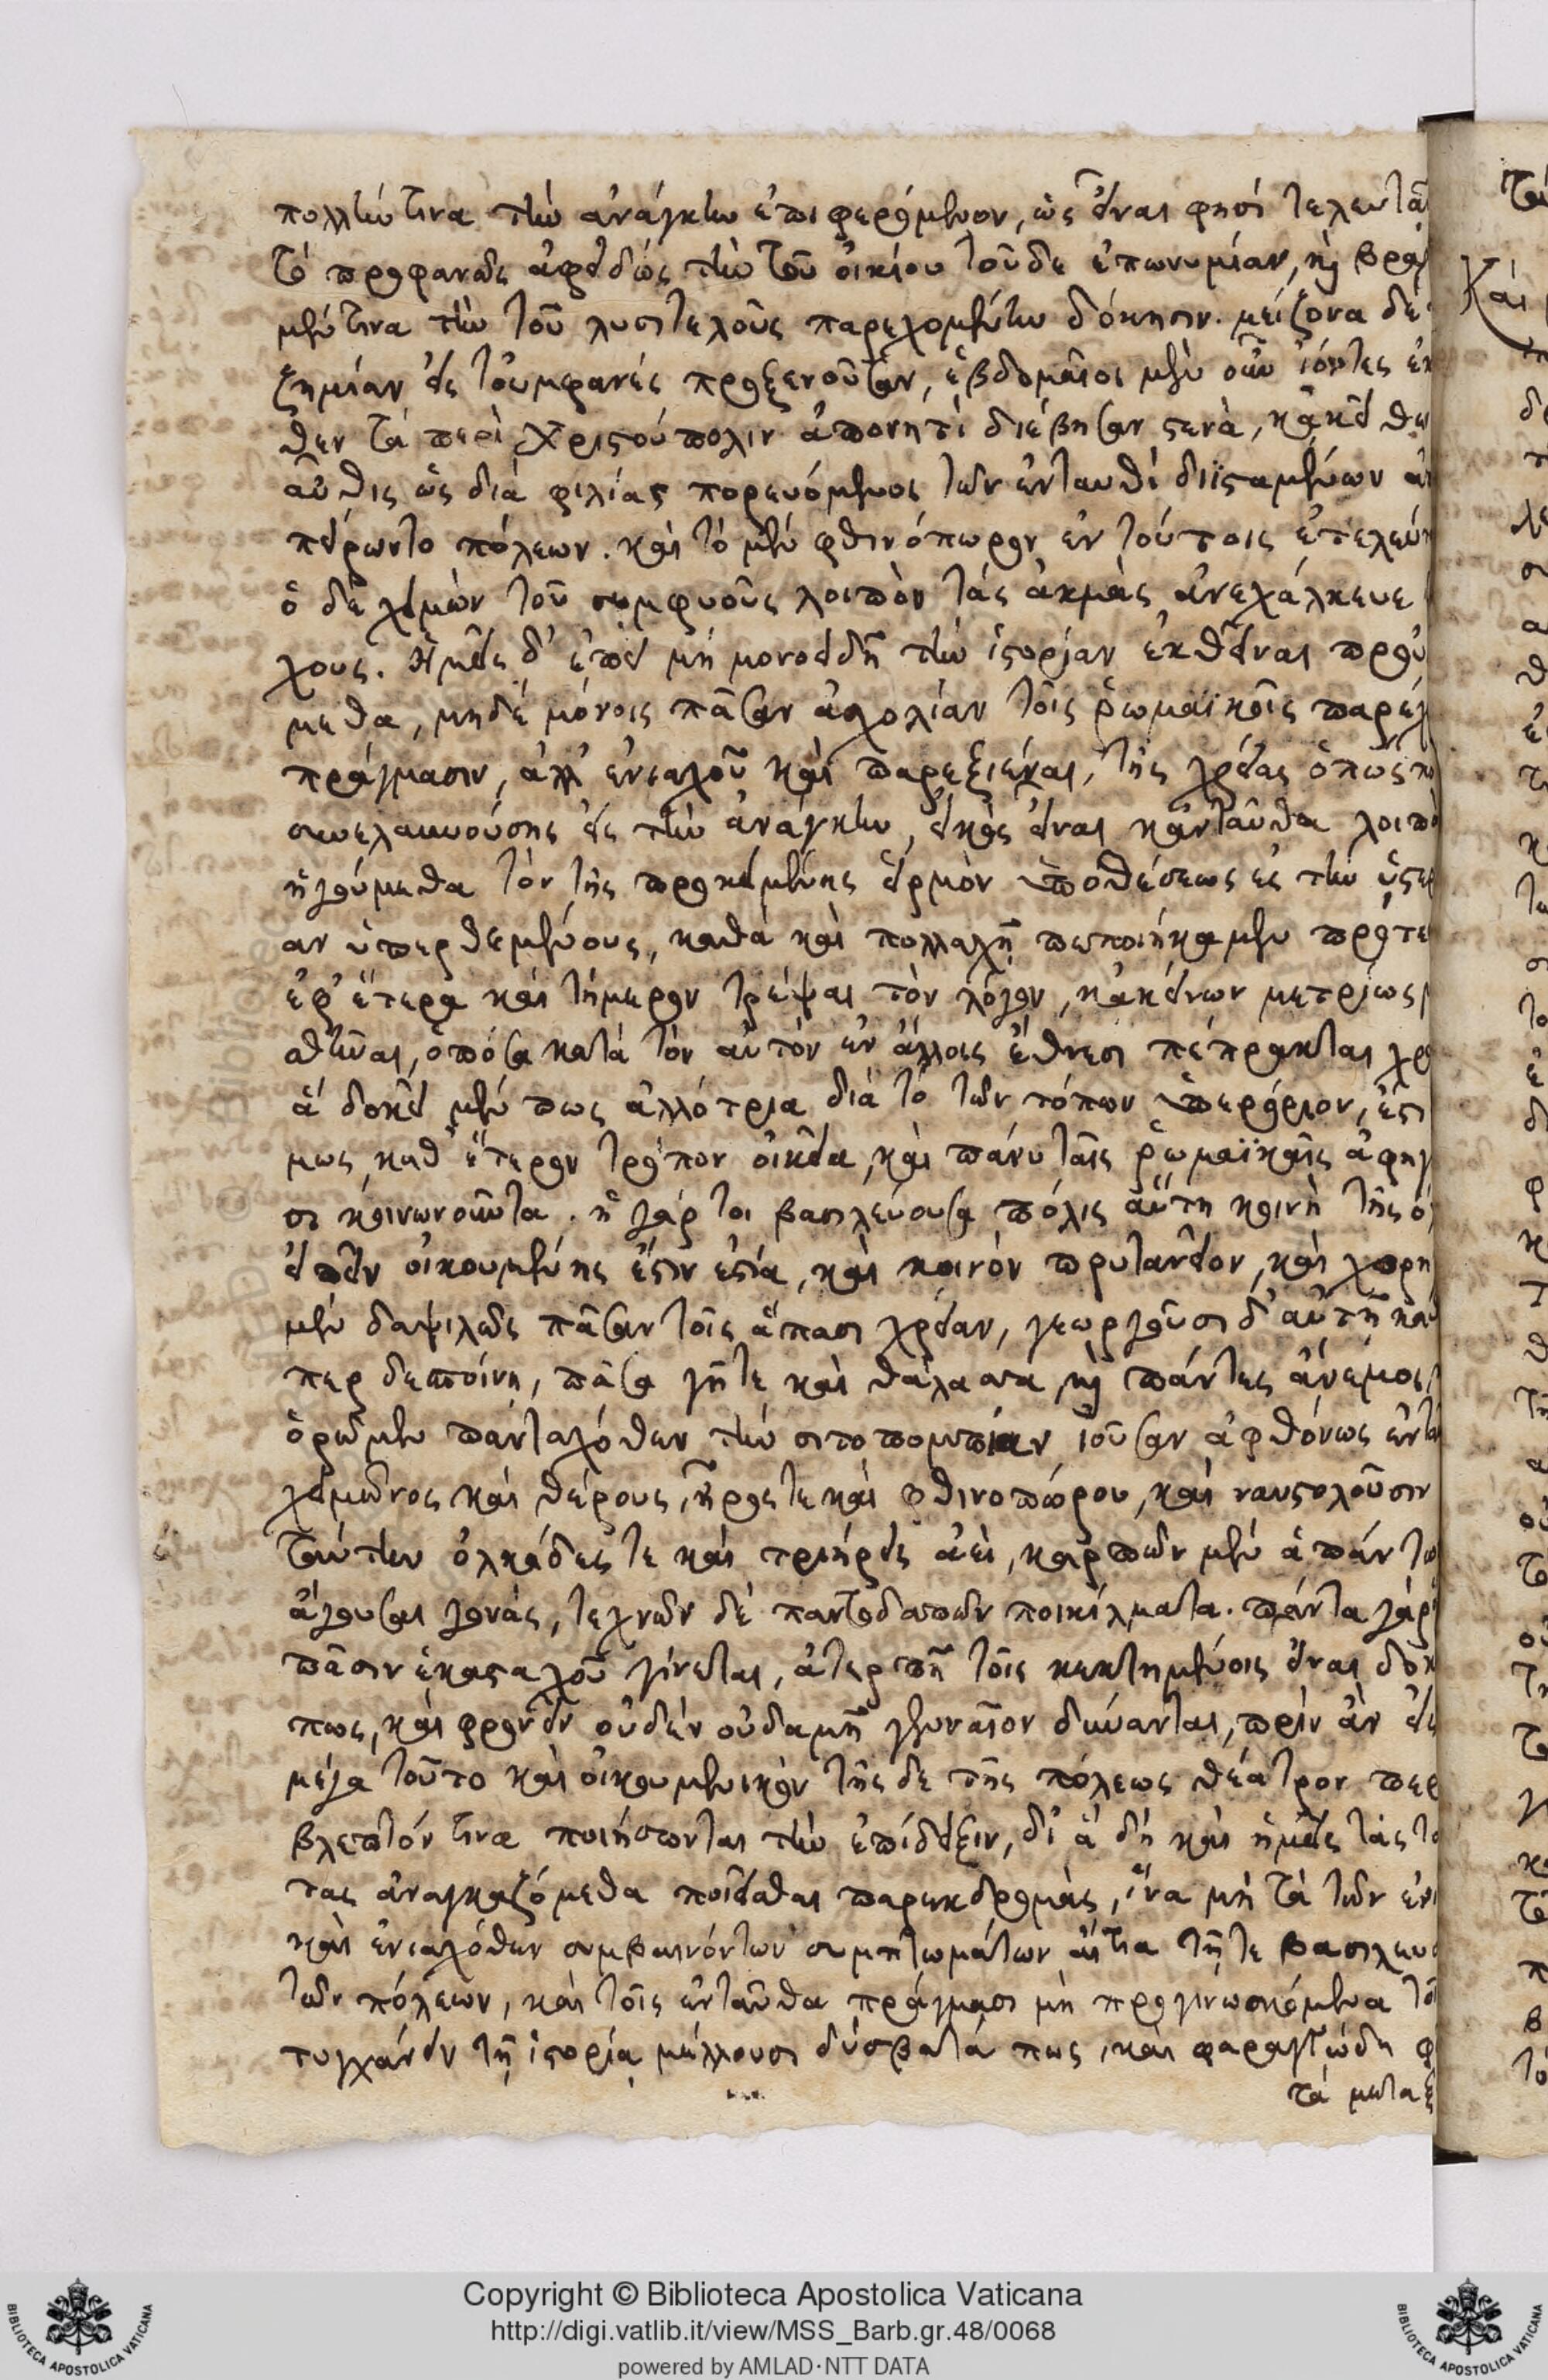 πολλὴν τινὰ τὴν ἀνάγκην ἐπιφερόμενον, ὡς εἶναι φησὶ τελευτᾶ
τὸ προφανῶς ἀφειδῶς τὴν τοῦ οἰκίου τοῦδε ἐπωνυμίαν, καὶ βραχ
μέν τινα τὴν τοῦ λυσιτελοῦς παρεχομένην δόκησιν. μείζονα δὲ
ζημίαν εἰς τοὐμφανές προξενοῦσαν, ἑβδομαῖοι μὲν οὖν ἰόντες ἐκ
θεν τὰ περὶ Χριστούπολιν ἀπονητὶ διέβησαν στενὰ, κἀκεῖθεν
αὖθις ὡς διὰ φιλίας πορευόμενοι τῶν ἐνταυθὶ διϊσταμένων ἀ
πείρωντο πόλεων. καὶ τὸ μὲν φθινόπωρον ἐν τούτοις ἐτελεύτ
ὁ δὲ χειμὼν τοῦ συμφυοῦς λοιπὸν τὰς ἀκμὰς ἀνεχάλκευε
χους. Ἡμεῖς δ' ἐπεὶ μὴ μονοειδῆ τὴν ἱστορίαν ἐκθεῖναι προὐ
μεθα, μηδὲ μόνοις πᾶσαν ἀσχολίαν τοῖς ῥωμαϊκοῖς παρέχ
πράγμασιν, ἀλλ' ἐνιαχοῦ καὶ παρεξιέναι, τῆς χρείας ὁπωσπο
συνελαυνούσης εἰς τὴν ἀνάγκην, εἰκὸς εἶναι κἀνταῦθα λοιπὸ
ἡγούμεθα τὸν τῆς προκειμένης εἱρμὸν ὑποθέσεως ἐς τὴν ὑστε
αν ὑπερθεμένους, καθὰ καὶ πολλαχῆ πεποιήκαμεν πρότε
ἐφ' ἕτερα καὶ τήμερον τρέψαι τὸν λόγον, κἀκείνων μετρίως
σθῆναι, ὁπόσα κατὰ τὸν αὐτὸν ἐν ἄλλοις ἔθνεσι πέπρακται χρ
ἃ δοκεῖ μέν πως ἀλλότρια διὰ τὸ τῶν τόπων ὑπερόριον, ἔστ
μως καθ' ἕτερον τρόπον οἰκεῖα, καὶ πάνυ ταῖς ῥωμαϊκαῖς ἀφηγ
σι κοινωνοῦντα. ἡ γάρ τοι βασιλεύουσα πόλις αὕτη κοινὴ τῆς ὁ
εἰπεῖν οἰκουμένης ἔστιν ἑστία, καὶ κοινὸν πρυτανεῖον, καὶ χορη
μὲν δαψιλῶς πᾶσαν τοῖς ἅπασι χρείαν, γεωργοῦσι δ' αὐτῆ κα
περ δεσποίνη, πᾶσα γῆ τε καὶ θάλασσα καὶ πάντες ἄνεμοι
ὁρῶμεν πανταχόθεν τὴν σιτοπομπίαν ἰοῦσαν ἀφθόνως ἐντα
χειμῶνος καὶ θέρους, ἦρός τε καὶ φθινοπώρου, καὶ ναυστολοῦσιν
ταύτην ὁλκάδες τε καὶ τριήρεις ἀεὶ, καρπῶν μὲν ἁπάντω
ἄγουσαι γονὰς, τεχνῶν δὲ παντοδαπῶν ποικίλματα. πάντα γὰρ
πᾶσιν ἑκασταχοῦ γίνεται, ἀτερπῆ τοῖς κεκτημένοις εἶναι δοκ
πως, καὶ φρονεῖν οὐδὲν οὐδαμῆ γενναῖον δύνανται, πρὶν ἂν εἰς
μέγα τοῦτο καὶ οἰκουμενικὸν τῆς δε τῆς πόλεως θέατρον περ
βλεπτόν τινα ποιήσωνται τὴν ἐπίδειξιν, δι' ἃ δὴ καὶ ἡμεῖς τὰς το
τας ἀναγκαζόμεθα ποιεῖσθαι παρεκδρομὰς, ἵνα μὴ τὰ τῶν ἐνι
καὶ ἐνιαχόθεν συμβαινόντων συμπτωμάτων αἴτια τῆ τε βασιλευο
τῶν πόλεων, καὶ τοῖς ἐνταῦθα πράγμασι μὴ προγινωσκόμενα το
τυγχάνειν τῆ ἱστορία μέλλουσι δύσβατά πως, καὶ φαραγγώδη φ
τὰ μεταξ
Copyright © Biblioteca Apostolica Vaticana
http://digi.vatlib.it/view/MSS_Barb.gr.48/0068
powered by AMLAD·NTT DATA